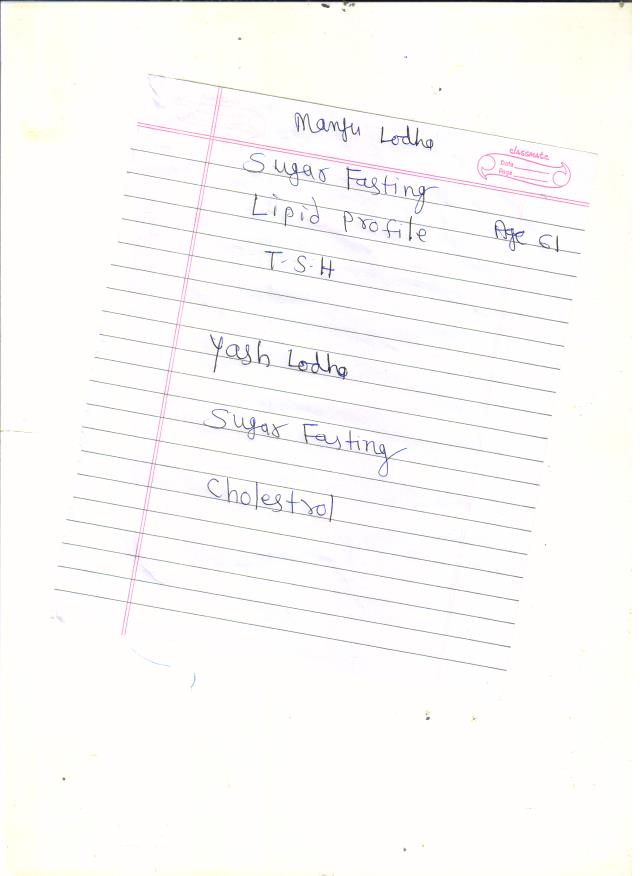 Manju Lodha
classmate
Date
Page
Sugar Fasting
Lipid Profile Age 61
T.S.H
Yash Lodha
Sugar Fasting
Cholestrol